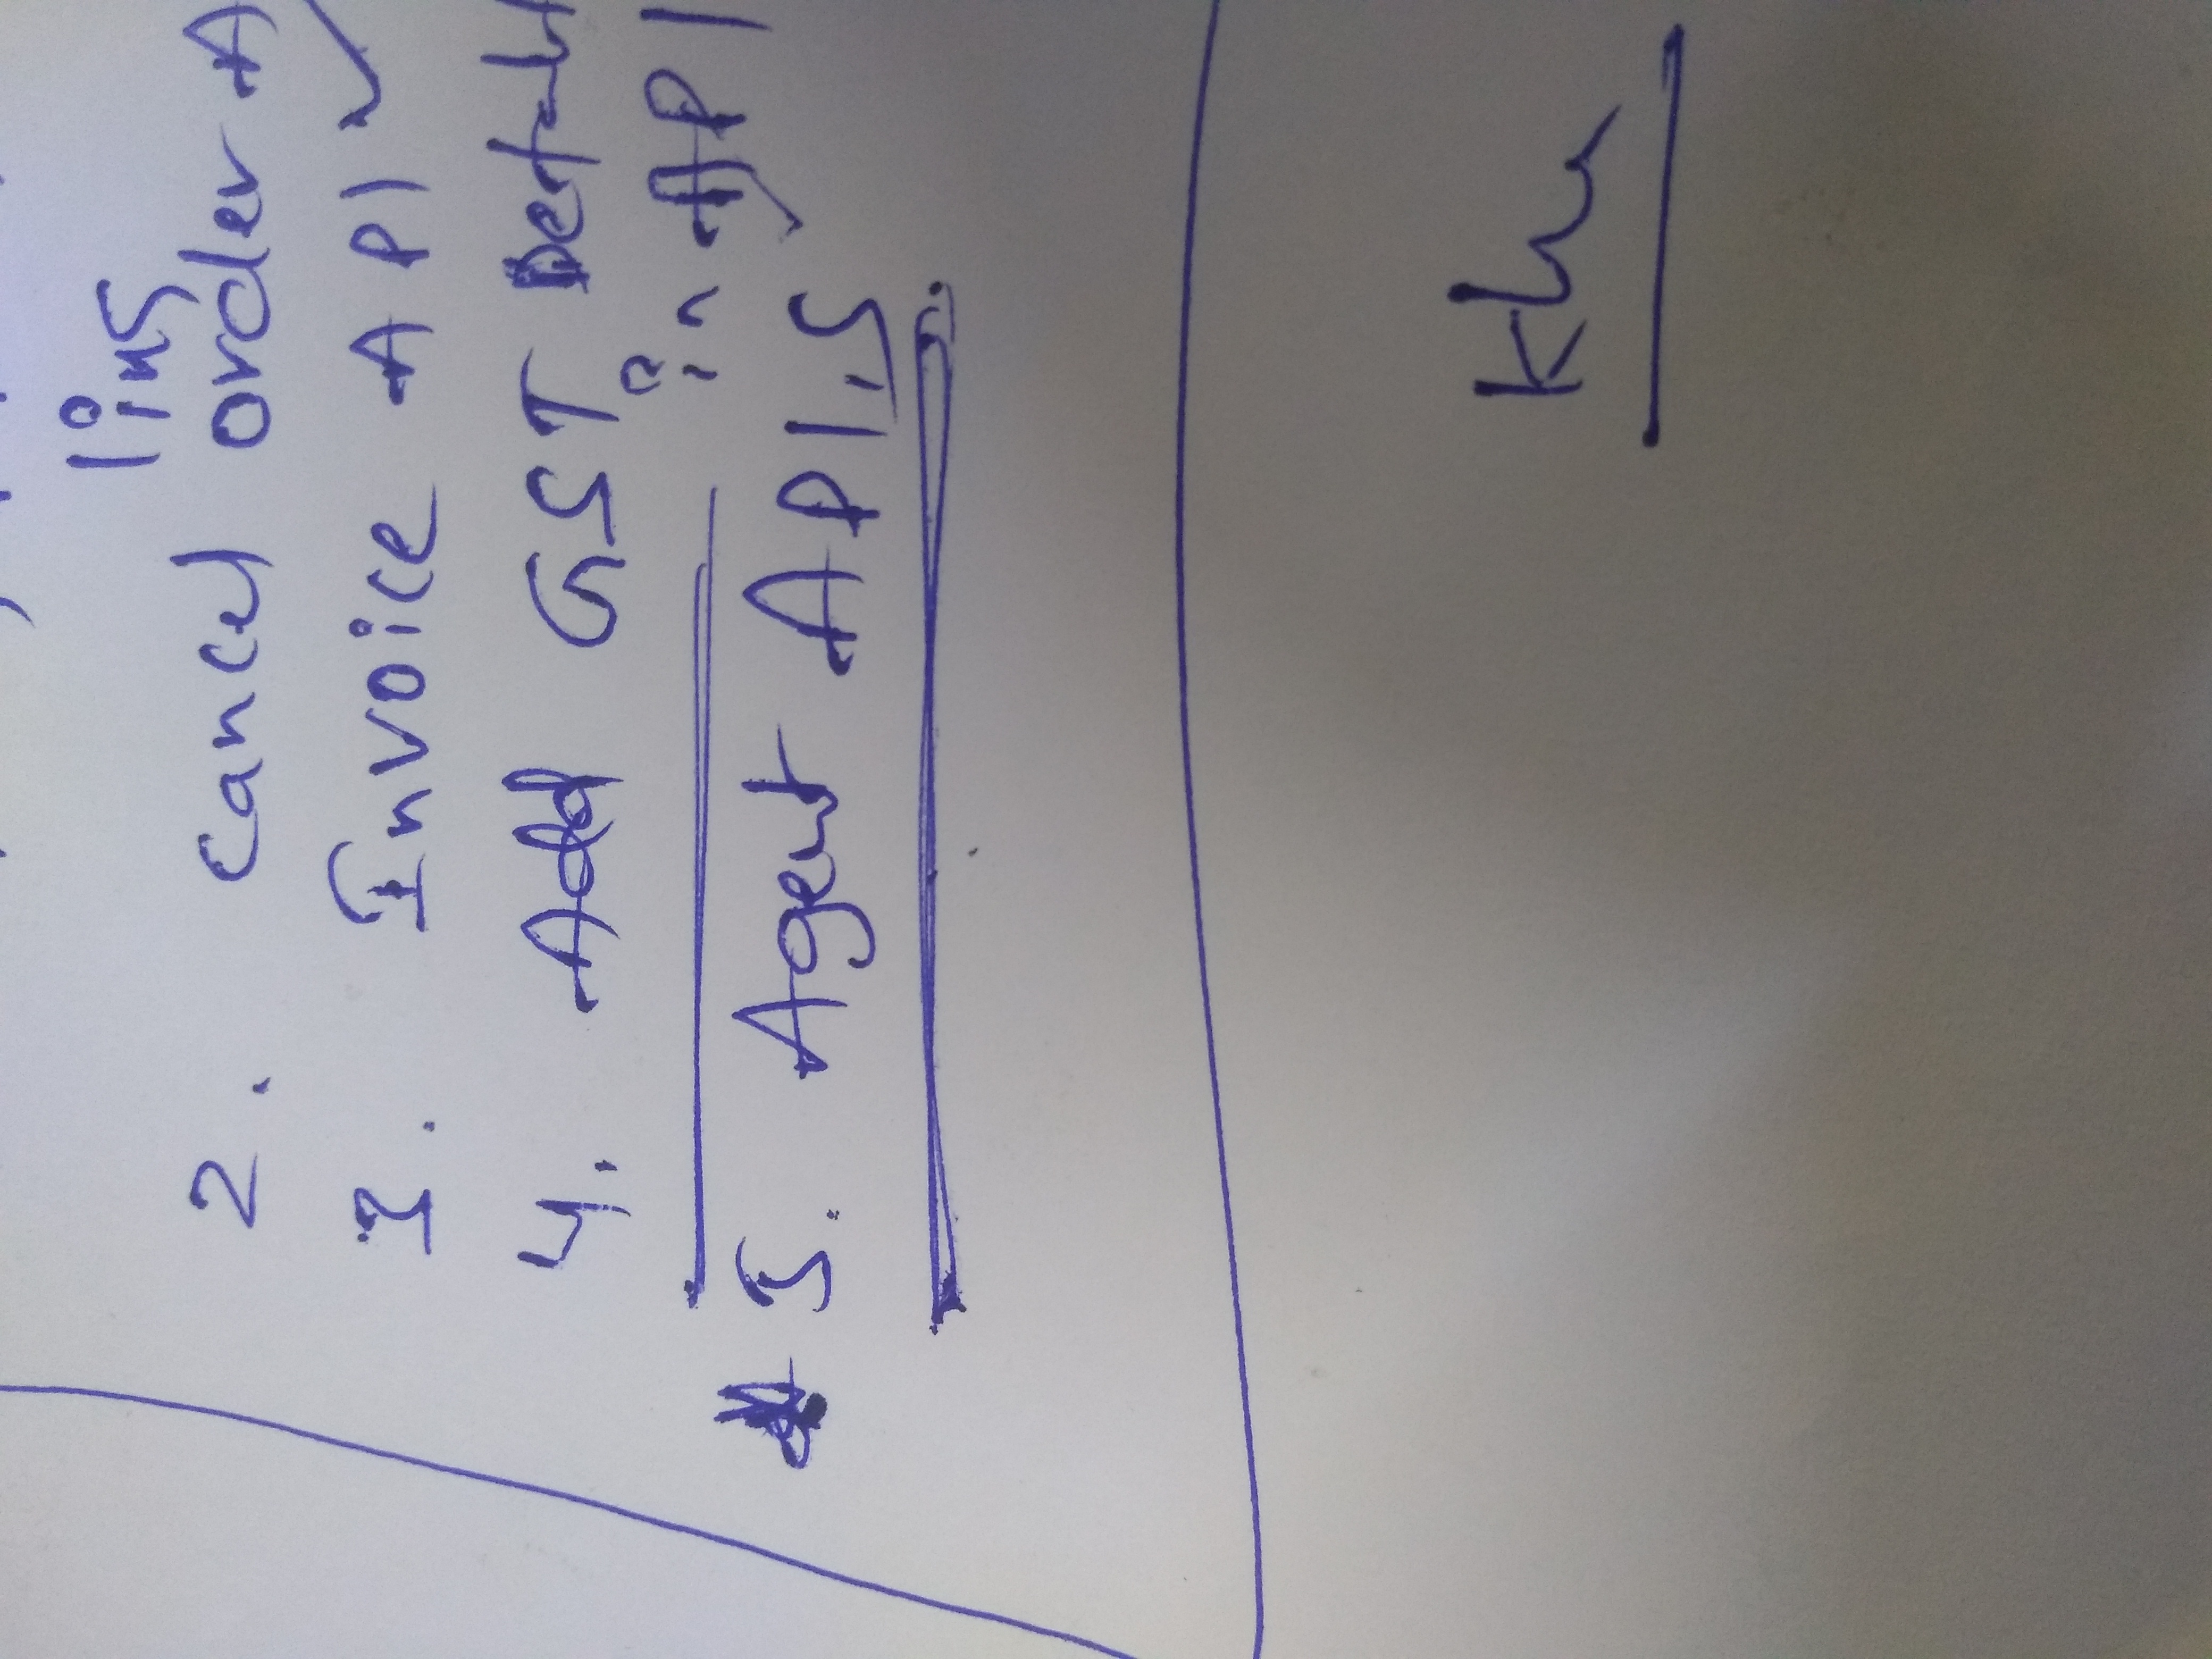 2. Cancel order A
3. Invoice API
4. Add GST Details
in API
5. Agent API,S